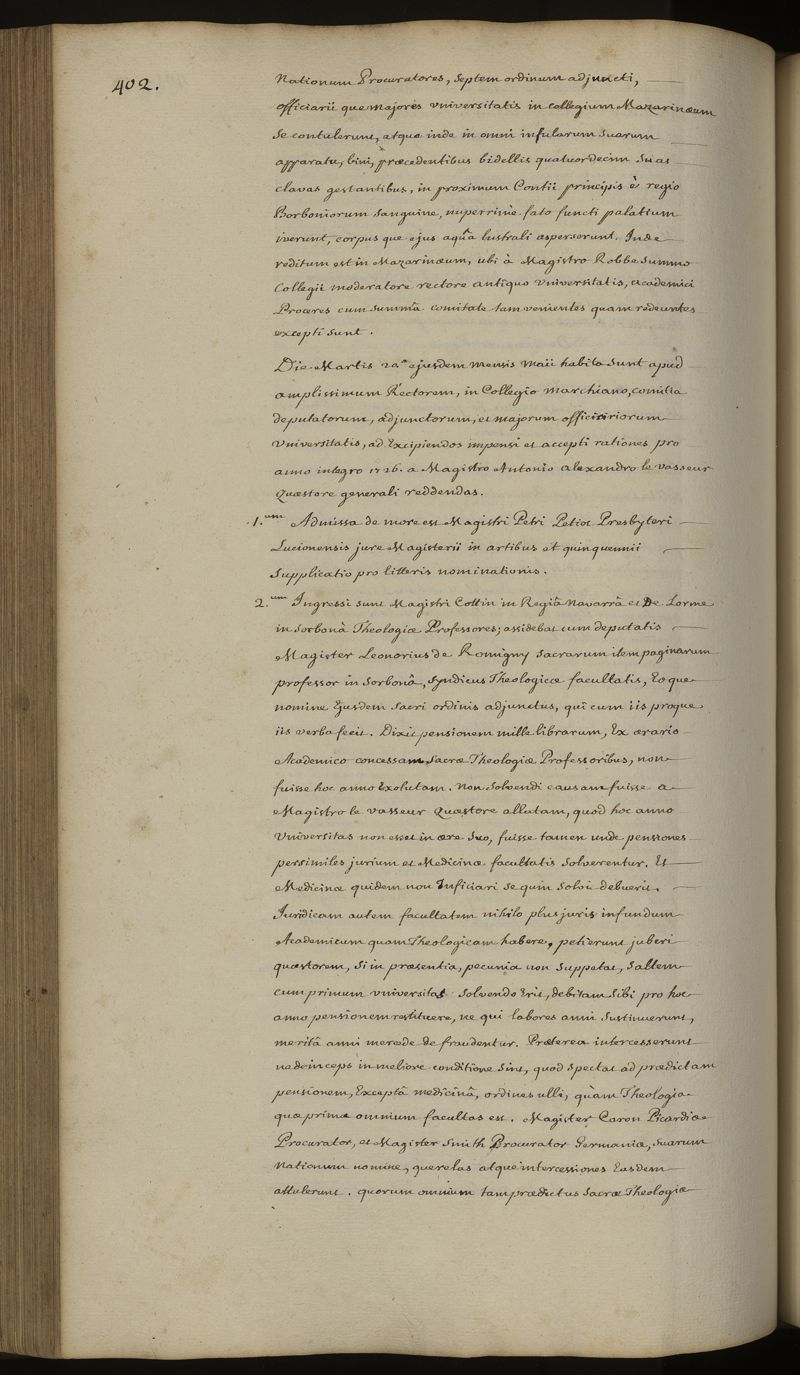 402.
Nationum Procuratores, Septem ordinum adjuncti,
officiarii que majores universitatis in collegium Mazarinæum
se contulerunt, atque inde in omni infularum Suarum
apparatu, bini, præcedentibus bidellis quatuordecim Suas
clavas gestantibus, in proximum Contii principis è regio
Borboniorum Sanguine, nuperrimè fato functi palatium
iverunt, corpus que ejus aquâ lustrali asperserunt. Inde
reditum est in Mazarinæum, ubi à Magistro Robbe Summo
Collegii moderatore rectore antiquo Universitatis, academici
Proceres cum Summâ comitate tam venientes quam redeuntes
excepti Sunt.
Die Martis ejusdem mensis Maii habita Sunt apud
amplissimum Rectorem, in Collegio Marchiano, comitia
deputatorum, adjunctorum, et majorum officiariorum
Universitatis, ad Excipiendos impensi et accepti rationes pro
anno integro 1726. a Magistro Antonio alexandro le vasseur
Quæstore generali reddendas.
1.um Admissa de more est Magistri Petri Petiot Presbyteri
Lucionensis jure Magisterii in artibus et quinquennii
Supplicatio pro litteris nominationis.
2.um Ingressi sunt Magistri Cottin in Regiâ Navarrâ et De Lorme
in Sorbonâ Theologiæ Professores; assidebat cum deputatis
Magister Leonorius de Romigny Sacrarum item paginarum
professor in Sorbonâ, Syndicus Theologicæ facultatis, Eo que
nomine Ejusdem Sacri ordinis adjunctus, qui cum iis proque
iis verba fecit. Dixit pensionem mille librarum, Ex ærario
Academico concessam Sacræ Theologiæ Professoribus, non
fuisse hoc anno Exolutam. Non Solvendi causam fuisse a
Magistro le vasseur Quæstore allatam, quod hoc anno
Universitas non esset in ære Suo, fuisse tamen unde pensiones
persimiles jurium et Medicinæ facultatis Solverentur. Et
Medicinæ quidem non Inficiari se quin Solvi debuerit,
Juridicam autem facultatem nihilo plus juris in fundum
Academicum quam Theologicam habere, petierunt juberi
quæstorem, Si in præsentia, pecunia non Suppetat, Saltem
cum primum universitas Solvendo Erit, debitam Sibi pro hoc
anno pensionem restituere, ne qui labores anni Sustinuerunt,
meritâ anni mercede defraudentur. Præterea intercesserunt
ne deinceps in meliore conditione Sint, quod Spectat ad prædictam
pensionem, Exceptâ medicinâ, ordines ulli, quàm Theologia
quæ prima omnium facultas est. Magister Caron Picardiæ
Procurator, et Magister Smith Procurator Germaniæ, Suarum
Nationum nomine, querelas atque intercessiones Easdem
attulerunt. quorum omnium tam prædictus Sacræ Theologiæ